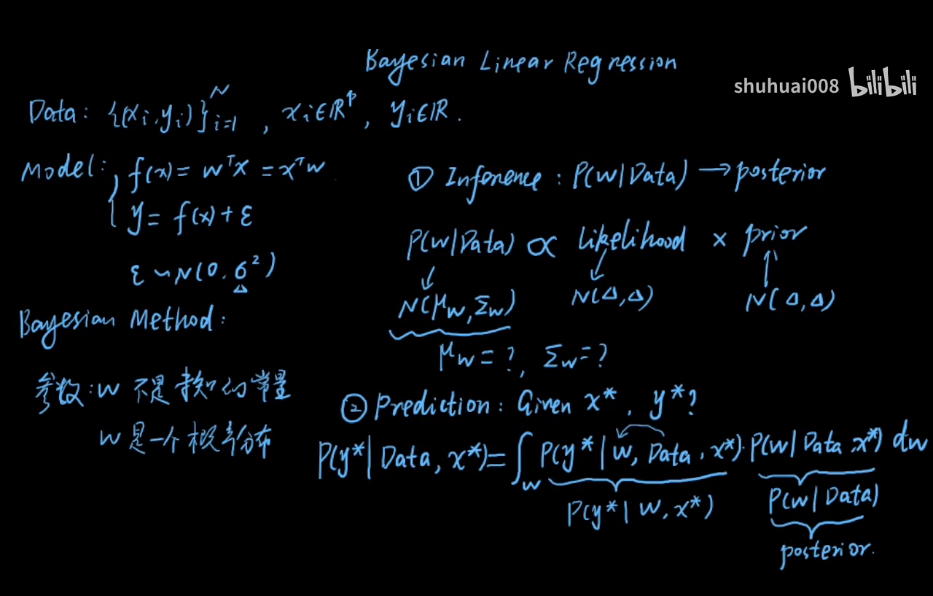 Bayesian Linear Regression
shuhuai008 bilibili
Data: {(xᵢ,yᵢ)}ᵢ₌₁ᴺ, xᵢ∈ℝᵖ, yᵢ∈ℝ.
Model: { f(x)=wᵀx=xᵀw
y=f(x)+ε
ε~N(0,σ²)
△
Bayesian Method:
参数:w 不是未知的常量
w是一个概率分布
① Inference: P(w|Data)→posterior
P(w|Data) ∝ likelihood × prior
N(μw,Σw) N(△,△) N(△,△)
μw=?, Σw=?
② Prediction: Given x*, y*?
P(y*|Data,x*)=∫w P(y*|w,Data,x*)·P(w|Data,x*)dw
P(y*|w,x*) P(w|Data)
posterior.